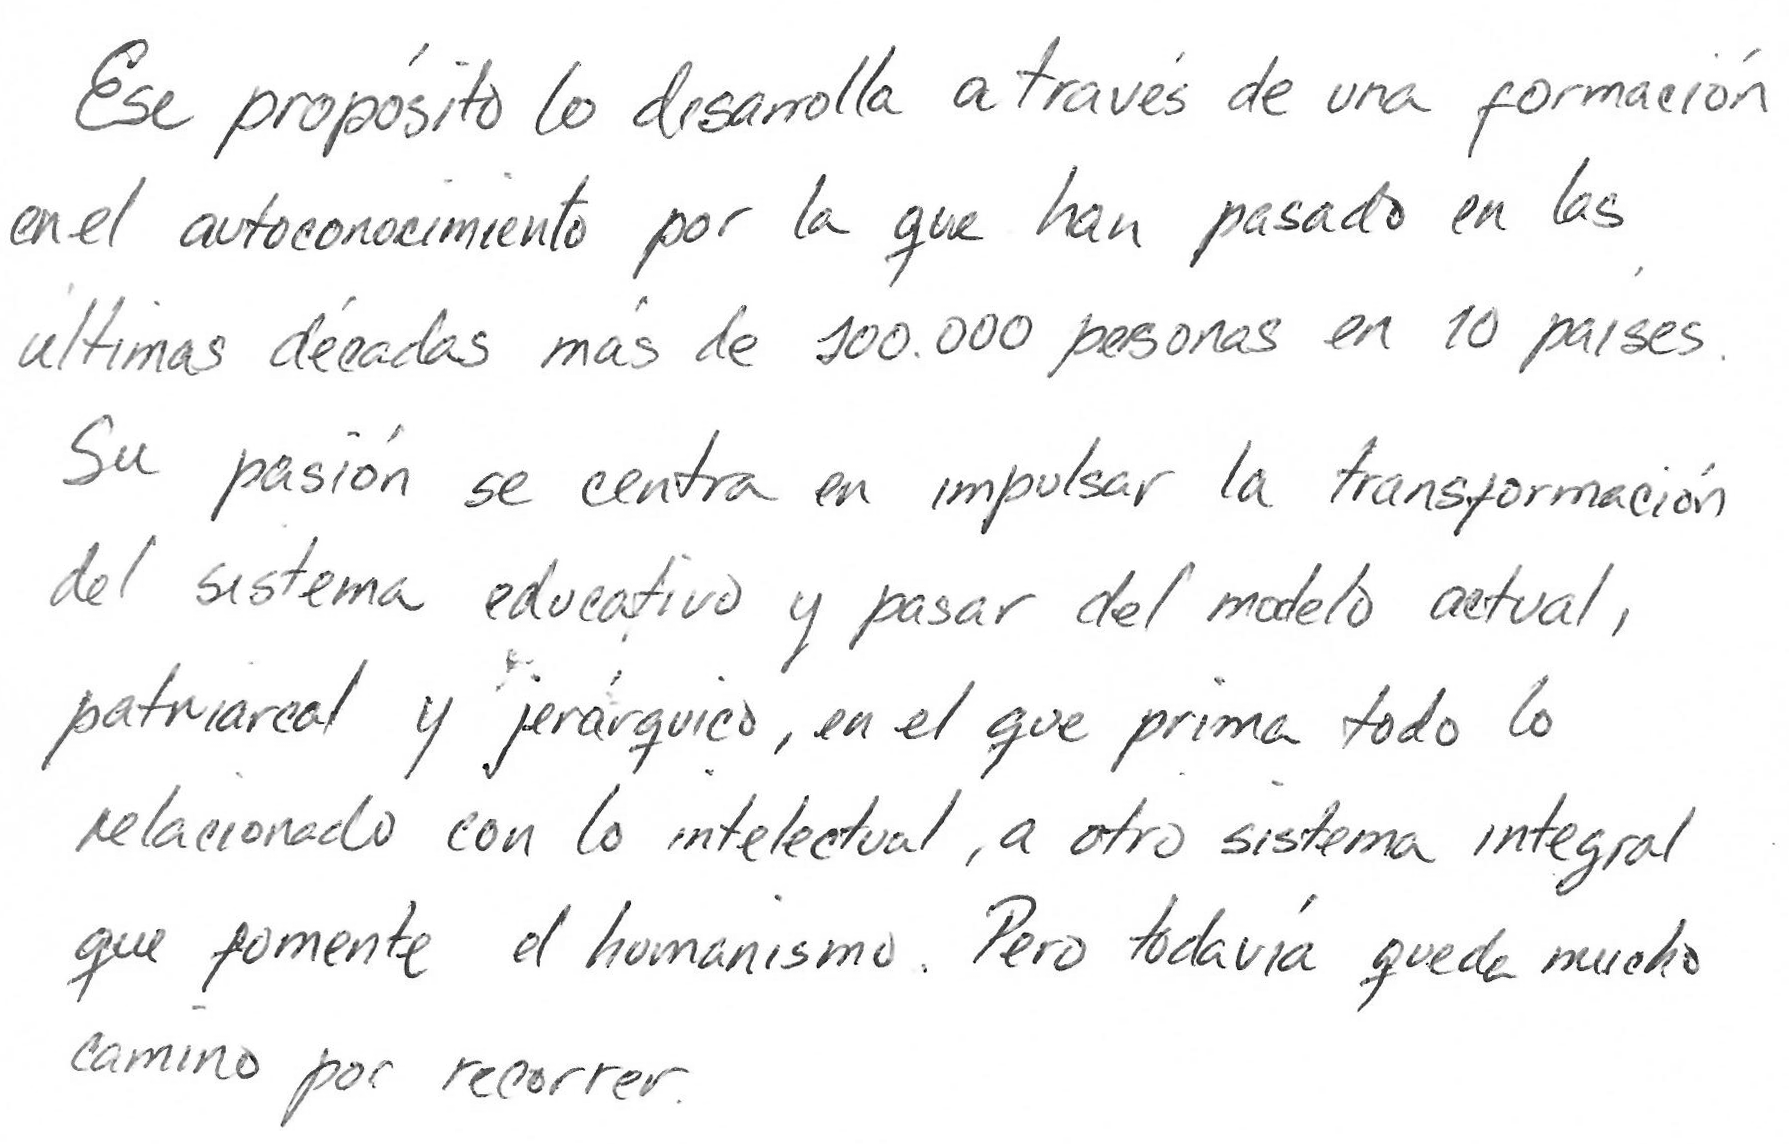 Ese propósito lo desarrolla a través de una formación
en el autoconocimiento por la que han pasado en las
últimas décadas más de 100.000 pesonas en 10 países.
Su pasión se centra en impulsar la transformación
del sistema educativo y pasar del modelo actual,
patriarcal y jerárquico, en el que prima todo lo
relacionado con lo intelectual, a otro sistema integral
que fomente el humanismo. Pero todavía queda mucho
camino por recorrer.